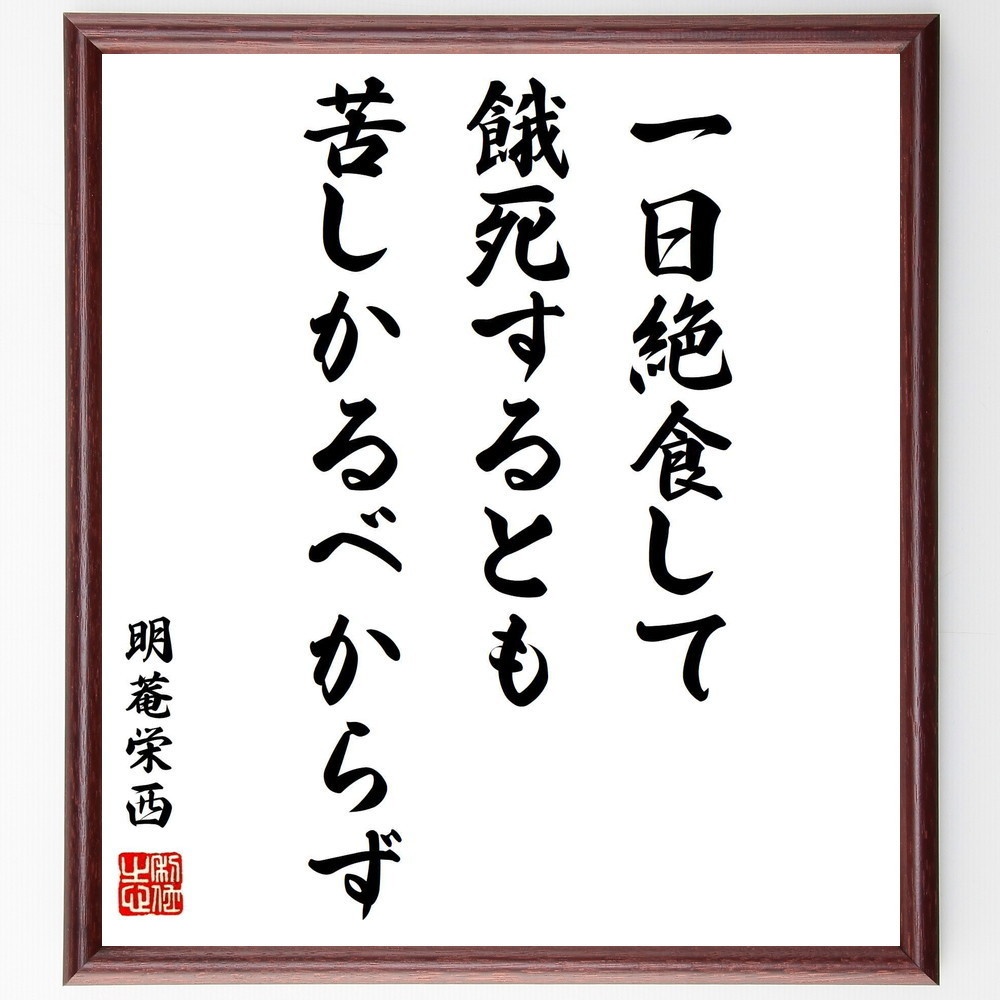 一日絶食して
餓死するとも
苦しかるべからず
明菴栄西